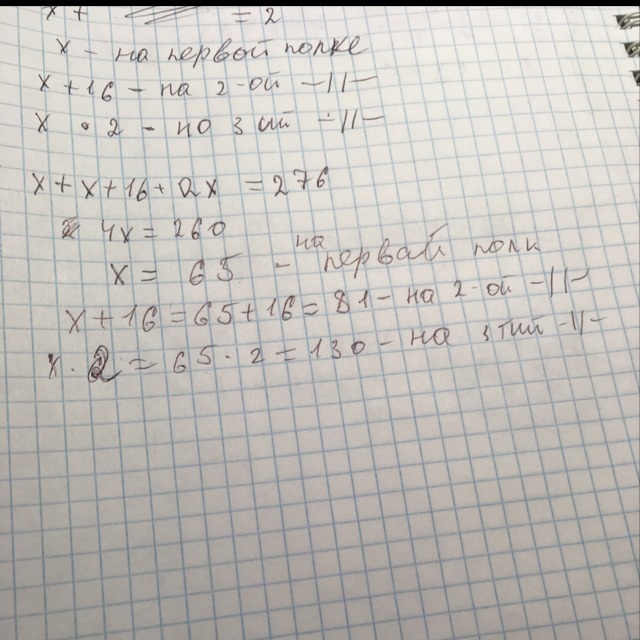 x + = 2
x - на первой полке
x + 16 - на 2-ой -||-
x · 2 - на 3 ий -||-
x + x + 16 + 2x = 276
4x = 260
x = 65 - на первай полк
x + 16 = 65 + 16 = 81 - на 2-ой -||-
x · 2 = 65 · 2 = 130 - на 3 тий -||-